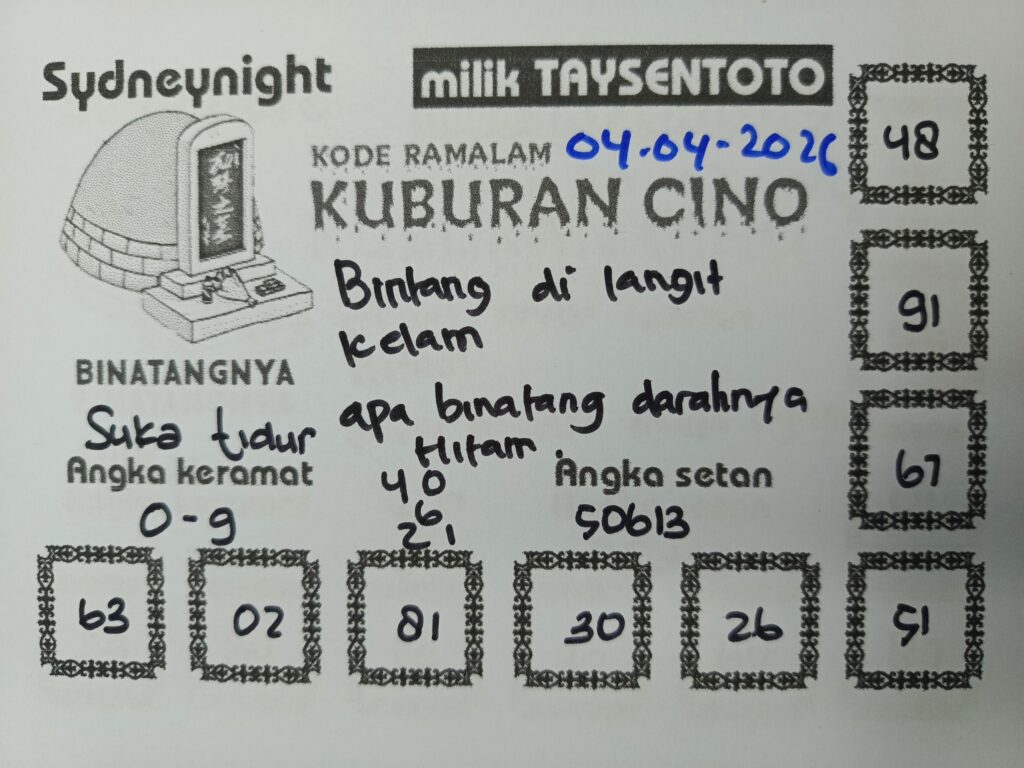 Sydneynight
milik TAYSENTOTO
KODE RAMALAM 04.04-2026
KUBURAN CINO
48
Bintang di langit
kelam
91
BINATANGNYA
Suka tidur
apa binatang darahnya
Hitam.
67
Angka keramat
0-9
40
6
21
Angka setan
50613
63
02
81
30
26
51